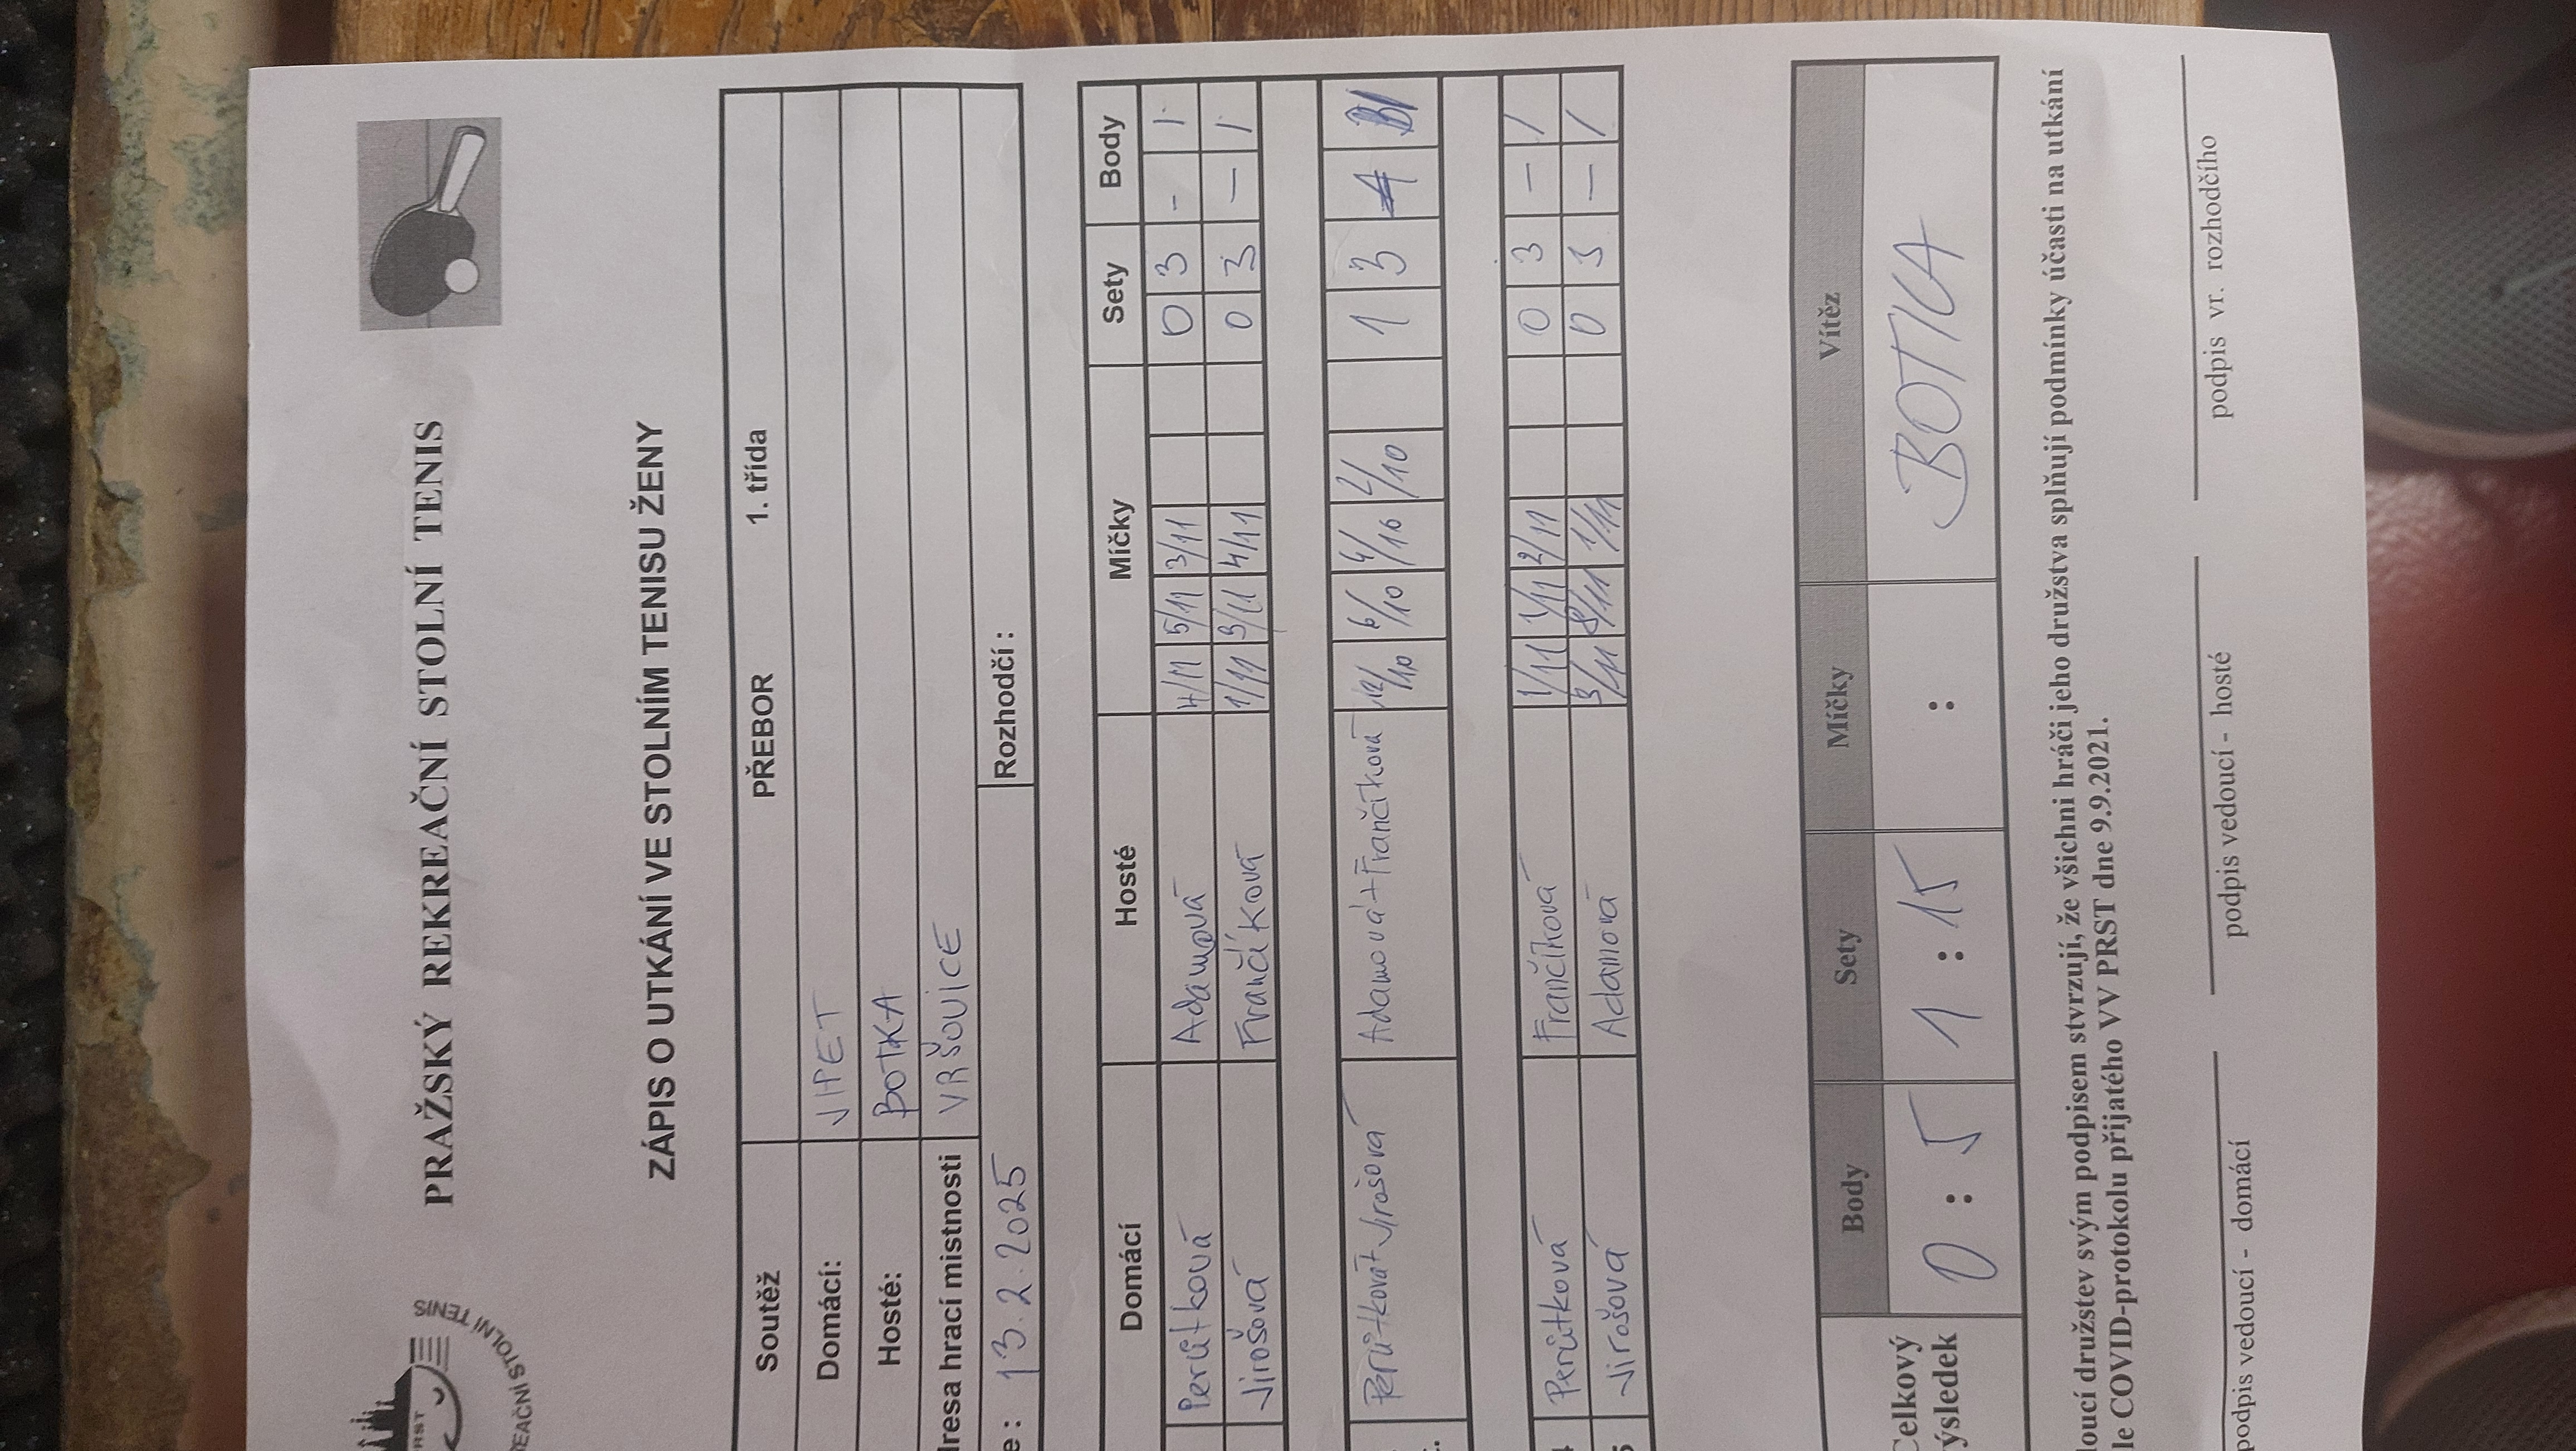 PRAŽSKÝ REKREAČNÍ STOLNÍ TENIS
RST
EAČNÍ STOLNÍ TENIS
ZÁPIS O UTKÁNÍ VE STOLNÍM TENISU ŽENY
Soutěž PŘEBOR 1. třída
Domácí: JIPET
Hosté: BOTKA
dresa hrací místnosti VRŠOVICE
e: 13.2.2025 Rozhodčí:
Domácí Hosté Míčky Sety Body
Perůtková Adamová 4/11 5/11 3/11 0 3 - 1
Jirošová Frančíková 1/11 9/11 4/11 0 3 - 1
Perůtková+Jirošová Adamová+Frančíková 12/10 6/10 4/10 2/10 1 3
4 Perůtková Frančíková 1/11 1/11 2/11 0 3 - /
5 Jirošová Adamová 3/11 8/11 1/11 0 3 - /
Celkový výsledek Body Sety Míčky Vítěz
0 : 5 1 : 15 : BOTKA
doucí družstev svým podpisem stvrzují, že všichni hráči jeho družstva splňují podmínky účasti na utkání
le COVID-protokolu přijatého VV PRST dne 9.9.2021.
podpis vedoucí - domácí podpis vedoucí - hosté podpis vr. rozhodčího